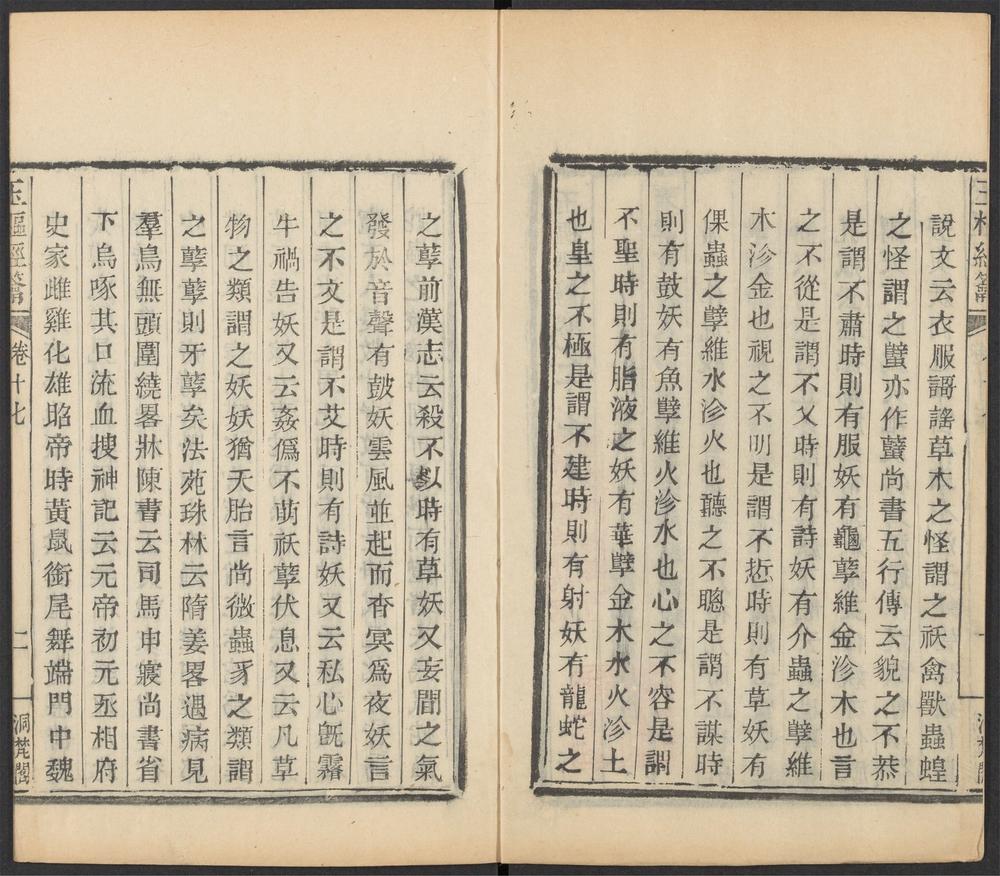 說文云衣服謌謠草木之怪謂之祅禽獸蟲蝗
之怪謂之蠥亦作蠥尚書五行傳云貌之不恭
是謂不肅時則有服妖有龜孽維金沴木也言
之不從是謂不乂時則有詩妖有介蟲之孽維
木沴金也視之不明是謂不悊時則有草妖有
倮蟲之孽維水沴火也聽之不聰是謂不謀時
則有鼓妖有魚孽維火沴水也心之不容是謂
不聖時則有脂液之妖有華孽金木水火沴土
也皇之不極是謂不建時則有射妖有龍蛇之
之孽前漢志云殺不以時有草妖又妄間之氣
發於音聲有鼓妖雲風並起而杳冥爲夜妖言
之不文是謂不艾時則有詩妖又云私心旣霿
牛禍告妖又云姦僞不萌祅孽伏息又云凡草
物之類謂之妖妖猶夭胎言尚微蟲豸之類謂
之孽孽則牙孽矣法苑珠林云隋姜畧遇病見
羣鳥無頭圍繞畧牀陳書云司馬申寢尚書省
下烏啄其口流血搜神記云元帝初元丞相府
史家雌雞化雄昭帝時黃鼠銜尾舞端門中魏
玉樞經籥
卷十七
二
洞梵閣